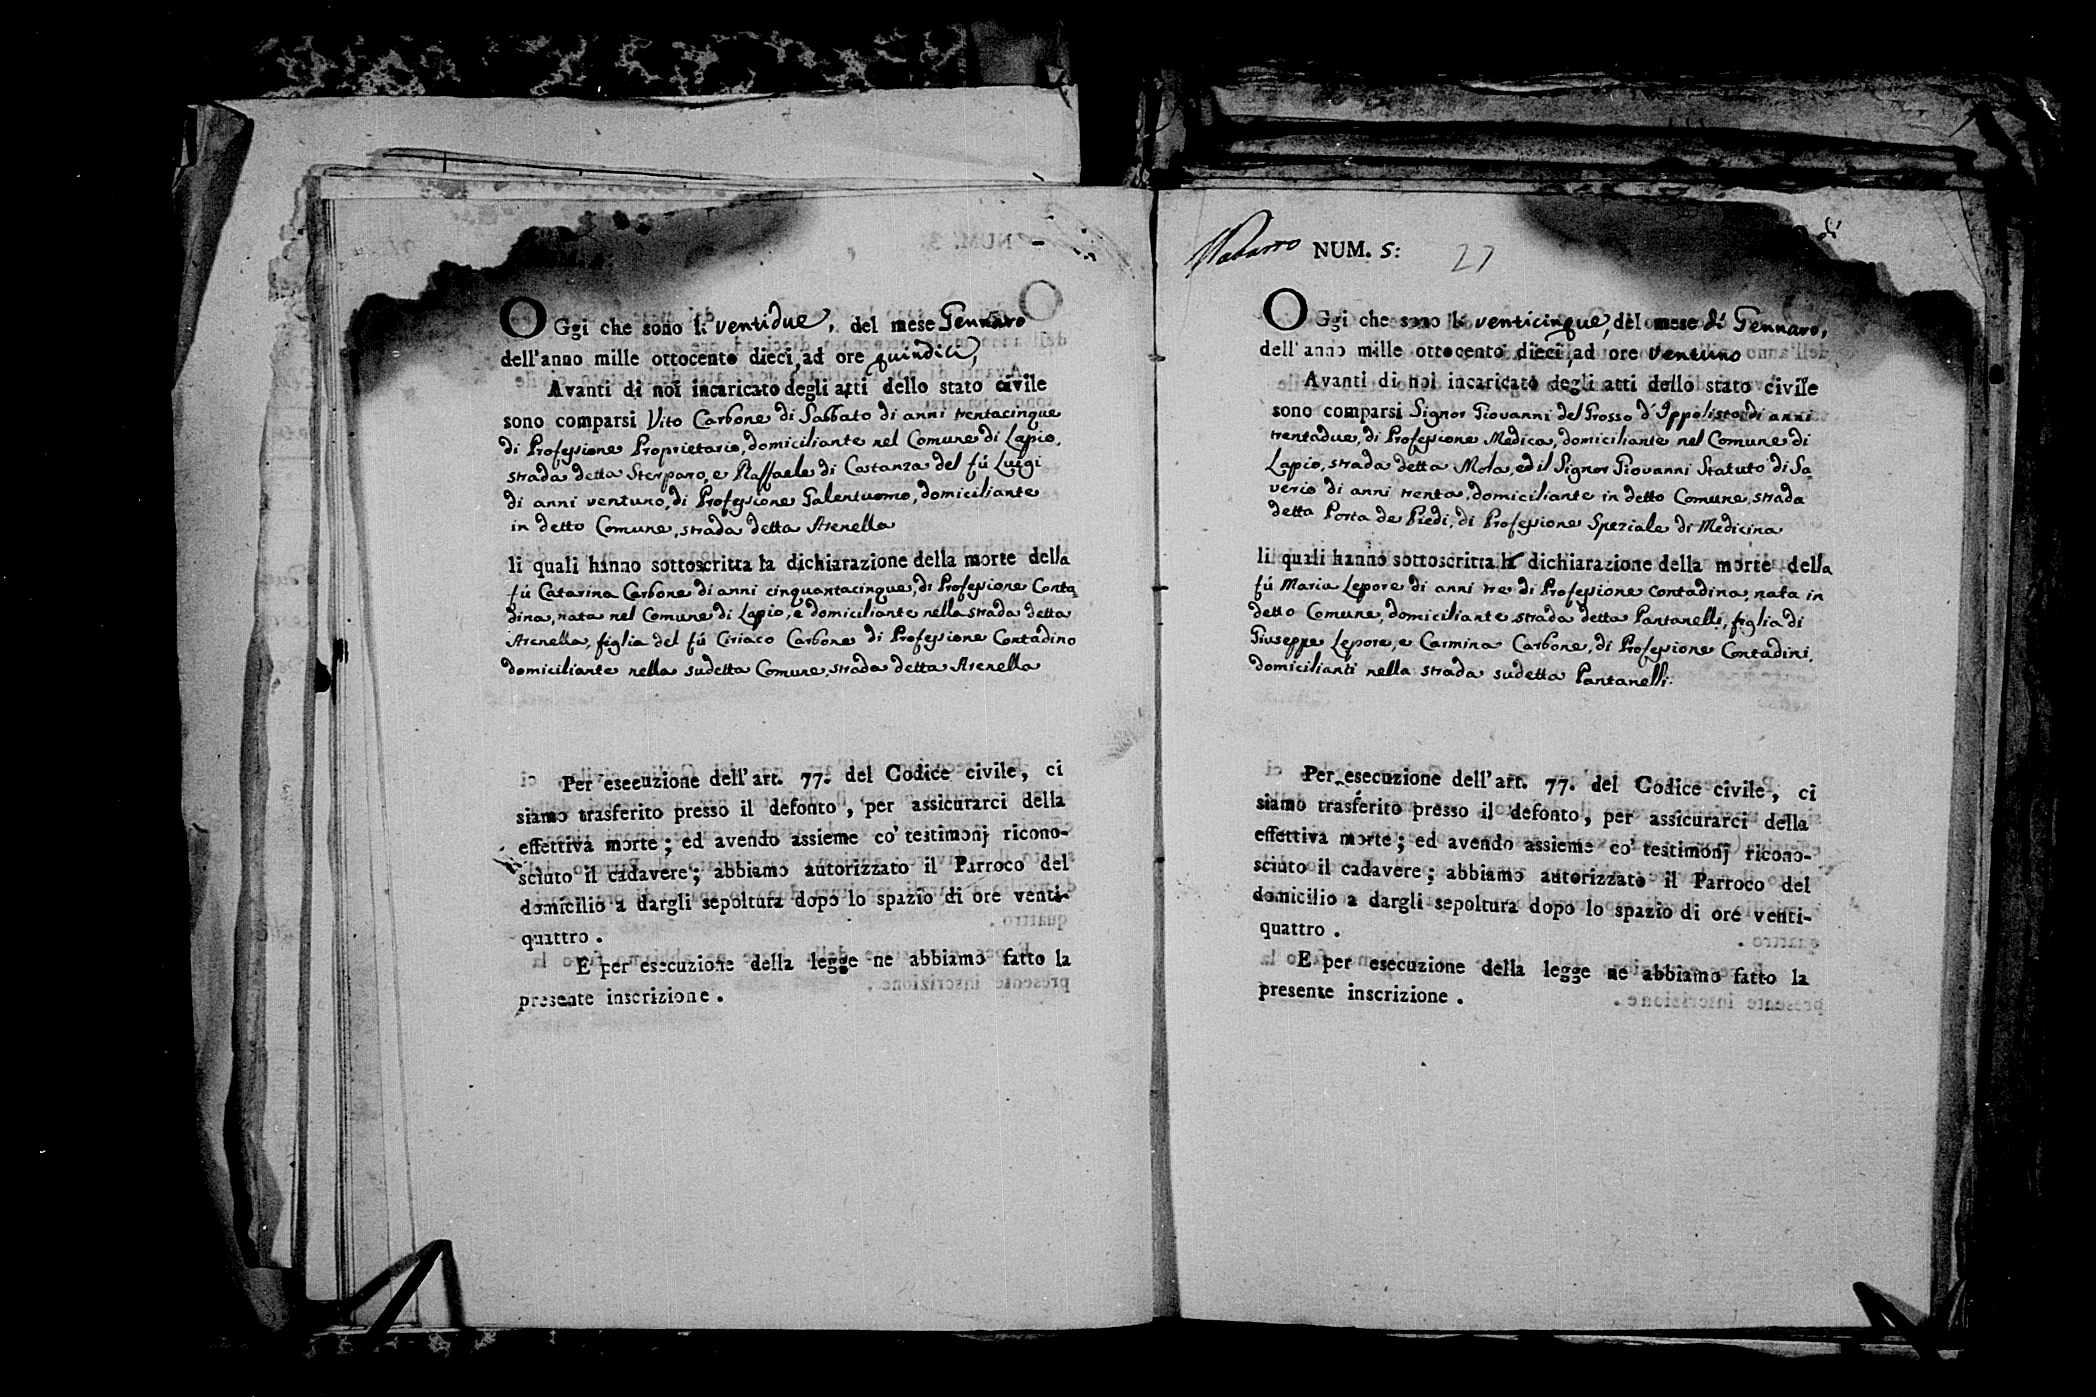 OGgi che sono li ventidue, del mese Gennaro
dell'anno mille ottocento dieci, ad ore quindici,
Avanti di noi incaricato degli atti dello stato civile
sono comparsi Vito Carbone di Sabbato di anni trentacinque
di Professione Proprietario, domiciliante nel Comune di Lapio,
strada detta Sterparo, e Raffaele di Costanza del fú Luigi
di anni ventuno, di Professione Galentuomo, domiciliante
in detto Comune, strada detta Arenella
li quali hanno sottoscritta la dichiarazione della morte della
fú Catarina Carbone di anni cinquantacinque, di Professione Conta
dina, nata nel Comune di Lapio, e domiciliante nella strada detta
Arenella, figlia del fú Ciriaco Carbone di Professione Contadino
domiciliante nella sudetta Comune, strada detta Arenella
Per esecuzione dell'art. 77. del Codice civile, ci
siamo trasferito presso il defonto, per assicurarci della
effettiva morte; ed avendo assieme co' testimonj ricono-
sciuto il cadavere; abbiamo autorizzato il Parroco del
domicilio a dargli sepoltura dopo lo spazio di ore venti-
quattro.
E per esecuzione della legge ne abbiamo fatto la
presente inscrizione.
NUM. 5: 27
OGgi che sono li venticinque, del mese di Gennaro,
dell'anno mille ottocento dieci, ad ore ventuno
Avanti di noi incaricato degli atti dello stato civile
sono comparsi Signor Giovanni del Grosso d'Ippolisto di anni
trentadue, di Professione Medica, domiciliante nel Comune di
Lapio, strada detta Mola, ed il Signor Giovanni Statuto di Sa
verio di anni trenta, domiciliante in detto Comune, strada
detta Porta de Piedi, di Professione Speziale di Medicina
li quali hanno sottoscritta la dichiarazione della morte della
fú Maria Lepore di anni tre di Professione contadina, nata in
detto Comune, domiciliante strada detta Pantanelli, figlia di
Giuseppe Lepore, e Carmina Carbone, di Professione Contadini,
domicilianti nella strada sudetta Pantanelli.
Per esecuzione dell'art. 77. del Codice civile, ci
siamo trasferito presso il defonto, per assicurarci della
effettiva morte; ed avendo assieme co' testimonj ricono-
sciuto il cadavere; abbiamo autorizzato il Parroco del
domicilio a dargli sepoltura dopo lo spazio di ore venti-
quattro.
E per esecuzione della legge ne abbiamo fatto la
presente inscrizione.